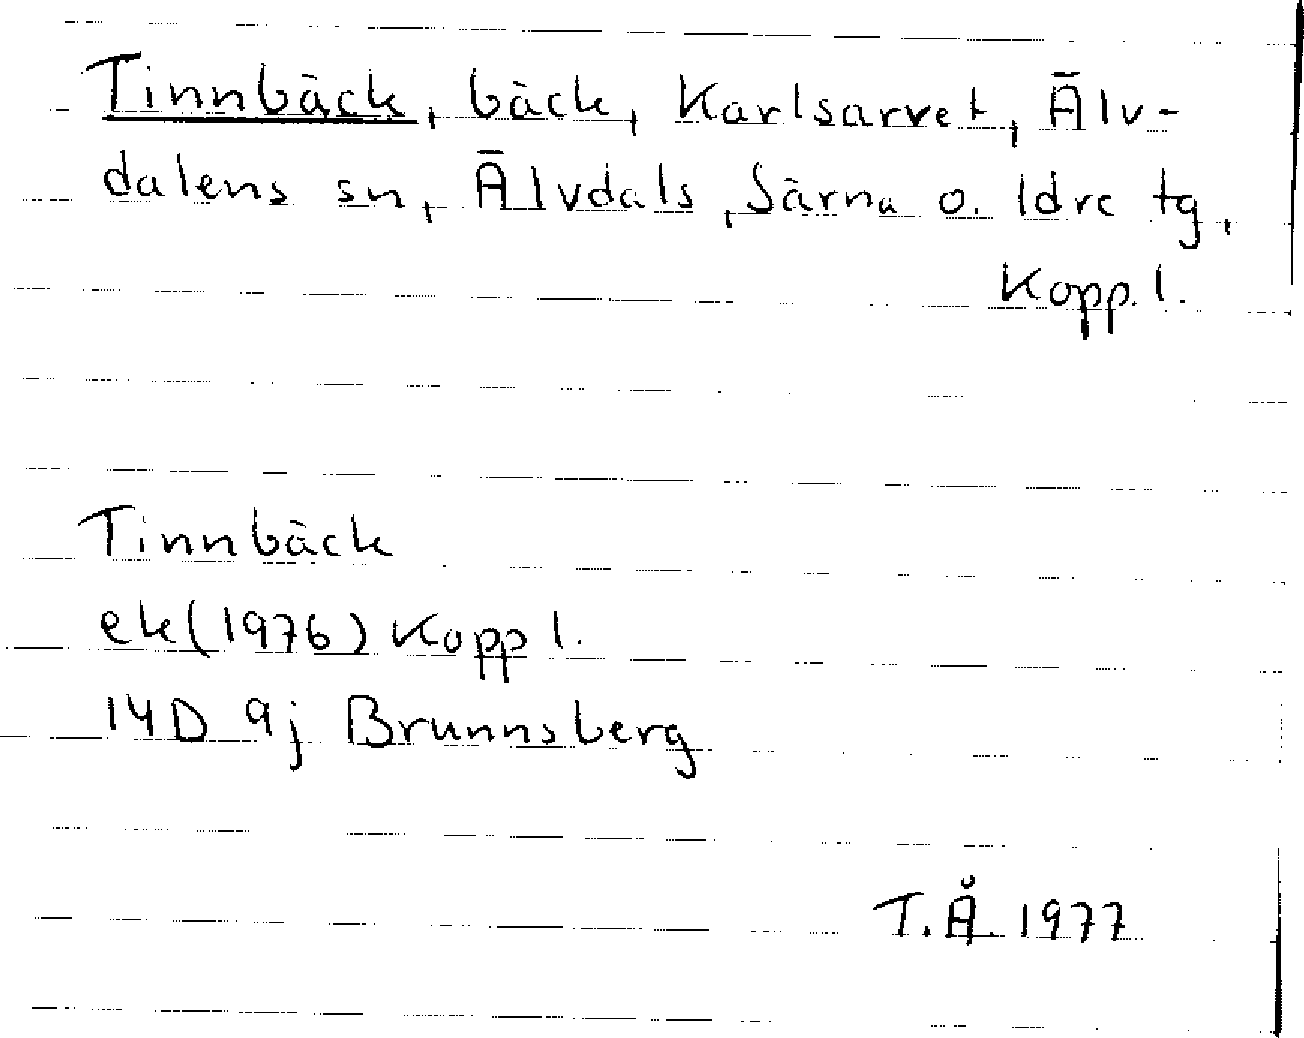 Tinnbäck, bäck, Karlsarvet, Älv-
dalens sn, Älvdals, Särna o. Idre tg,
Kopp. l.
Tinnbäck
ek(1976) Kopp l.
14D 9j Brunnsberg
T.Å. 1977